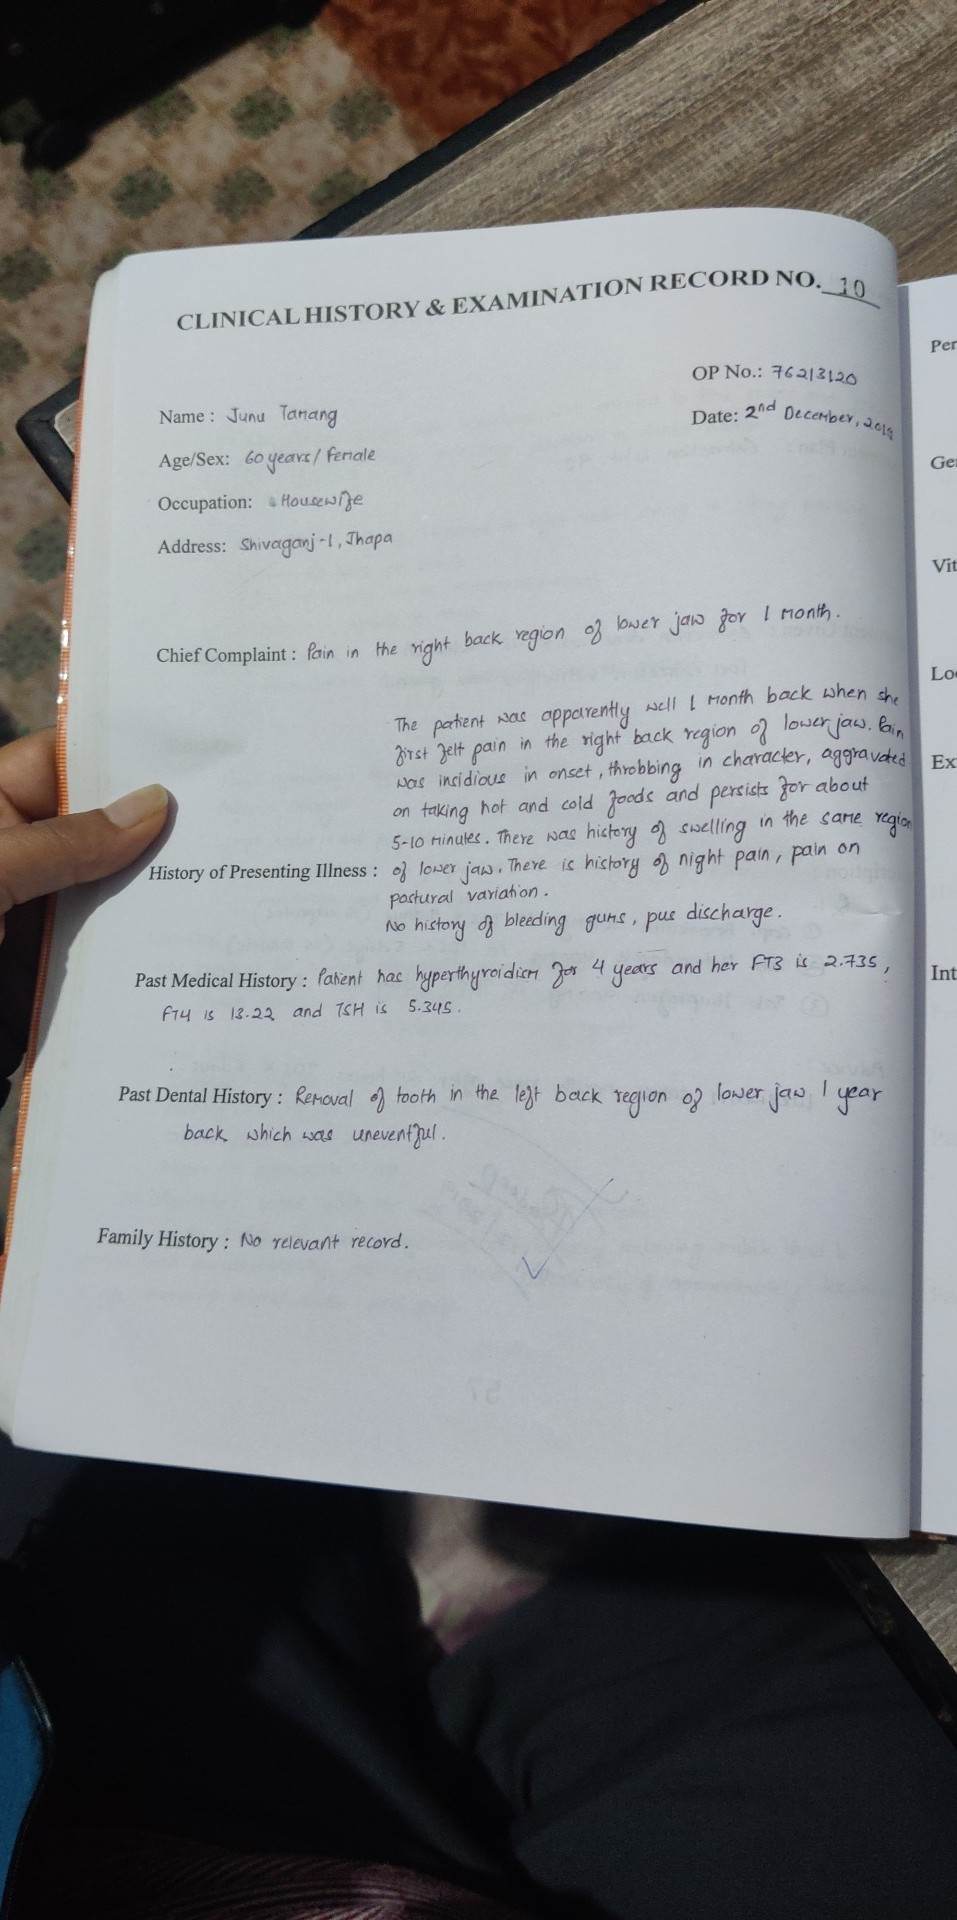 CLINICAL HISTORY & EXAMINATION RECORD NO. 10
OP No.: 76213120
Name : Junu Tamang
Date: 2nd December,
Age/Sex: 60 years / Female
Occupation: Housewife
Address: Shivaganj-1, Jhapa
Chief Complaint : Pain in the right back region of lower jaw for 1 month.
The patient was apparently well 1 month back when she
first felt pain in the right back region of lower jaw. Pain
was insidious in onset, throbbing in character, aggravated
on taking hot and cold foods and persists for about
5-10 minutes. There was history of swelling in the same region
History of Presenting Illness : of lower jaw. There is history of night pain, pain on
postural variation.
No history of bleeding gums, pus discharge.
Past Medical History : Patient has hyperthyroidism for 4 years and her FT3 is 2.735,
FT4 is 13.22 and TSH is 5.345.
Past Dental History : Removal of tooth in the left back region of lower jaw 1 year
back which was uneventful.
Family History : No relevant record.
Per
Ge
Vit
Lo
Ex
Int